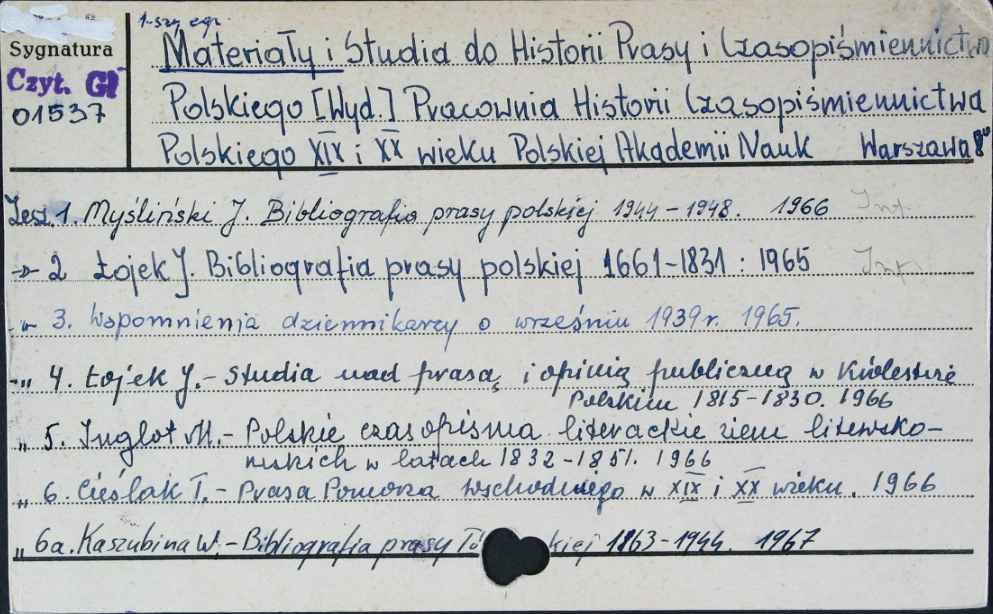 1-szy egz.
Sygnatura
Czyt. Gł
01537
Materiały i Studia do Historii Prasy i Czasopiśmiennictwa
Polskiego [Wyd.] Pracownia Historii Czasopiśmiennictwa
Polskiego XIX i XX wieku Polskiej Akademii Nauk Warszawa 8°
Zesz. 1. Myśliński J. Bibliografia prasy polskiej 1944-1948. 1966 Inf.
-"- 2 Łojek J. Bibliografia prasy polskiej 1661-1831 : 1965 Inf.
-"- 3. Wspomnienia dziennikarzy o wrześniu 1939 r. 1965.
-"- 4. Łojek J. - Studia nad prasą i opinią publiczną w Królestwie
Polskim 1815-1830. 1966
" 5. Inglot M. - Polskie czasopisma literackie ziem litewsko-
ruskich w latach 1832-1851. 1966
" 6. Cieślak T. - Prasa Pomorza Wschodniego w XIX i XX wieku. 1966
" 6a. Kaszubina W. - Bibliografia prasy kiej 1863-1944. 1967